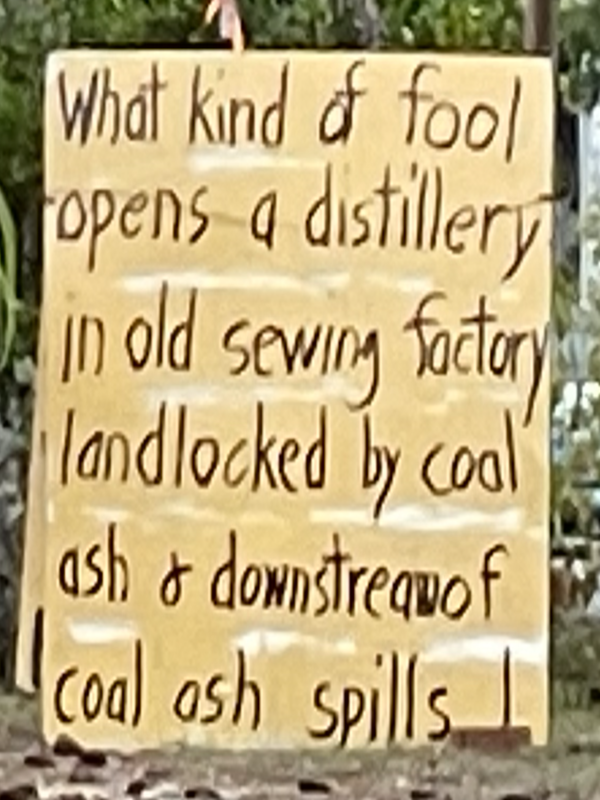 What kind of fool
opens a distillery
in old sewing factory
landlocked by coal
ash & downstream of
coal ash spills !